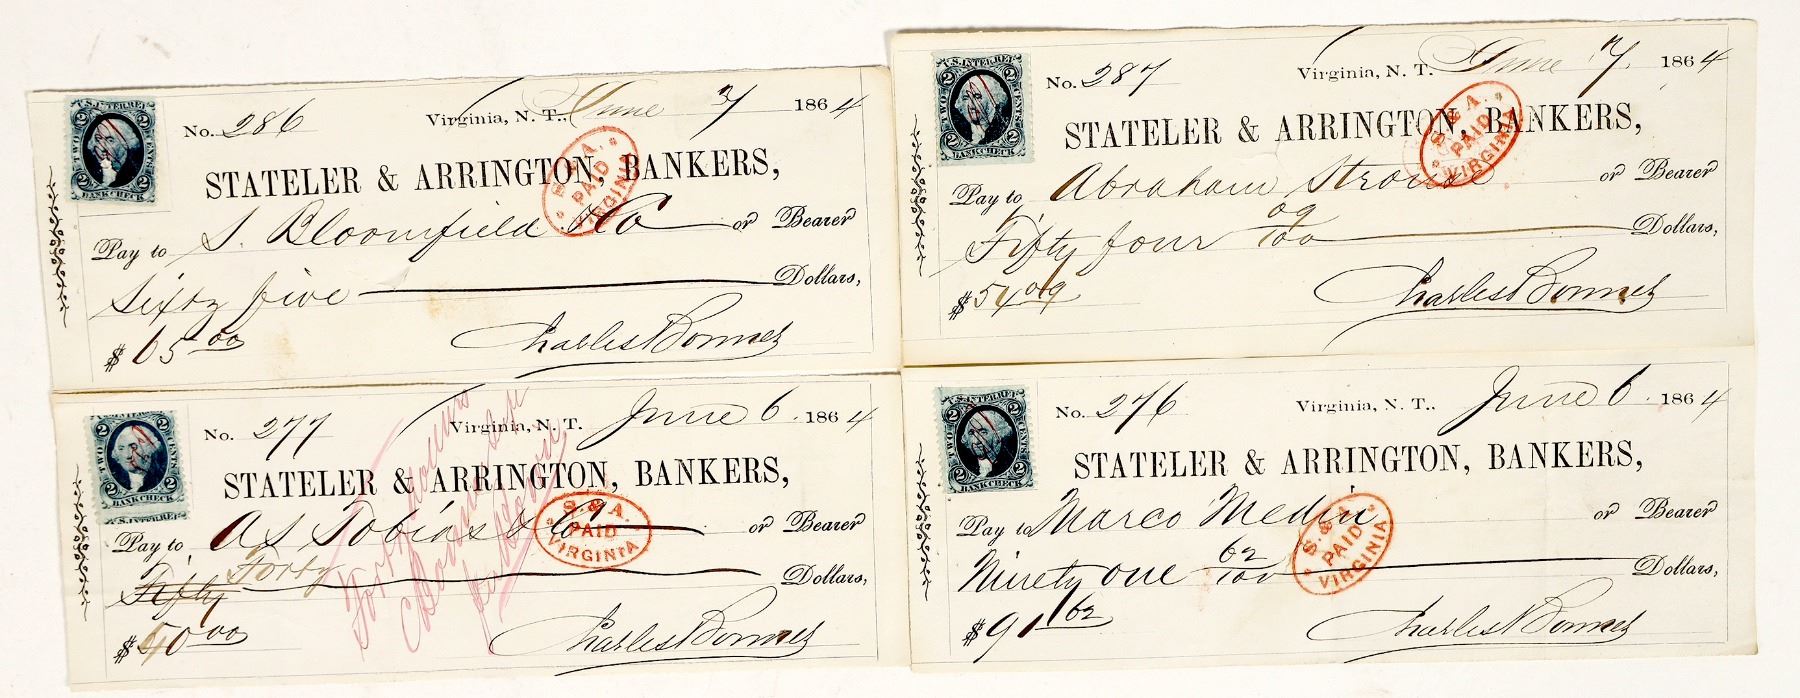 U.S. INTER. REV.
2 2
TWO CENTS
2 2
BANK CHECK
No. 286 Virginia, N. T., June 7 1864
STATELER & ARRINGTON, BANKERS,
S. & A.
PAID
VIRGINIA
Pay to S. Bloomfield & Co or Bearer
Sixty five Dollars,
$65 00
Charles Bonner
U.S. INTER. REV.
2 2
TWO CENTS
2 2
BANK CHECK
No. 287 Virginia, N. T. June 7, 1864
STATELER & ARRINGTON, BANKERS,
S. & A.
PAID
VIRGINIA
Pay to Abraham Strouse or Bearer
Fifty four 09/100 Dollars,
$54 09
Charles Bonner
U.S. INTER. REV.
2 2
TWO CENTS
2 2
BANK CHECK
U.S. INTER. REV.
No. 277 Virginia, N. T. June 6. 1864
STATELER & ARRINGTON, BANKERS,
S. & A.
PAID
VIRGINIA
Pay to AS Tobias & Co or Bearer
Fifty Forty Dollars,
$40 00
Charles Bonner
Forty Dollars
U.S. INTER. REV.
2 2
TWO CENTS
2 2
BANK CHECK
No. 276 Virginia, N. T.. June 6. 1864
STATELER & ARRINGTON, BANKERS,
S. & A.
PAID
VIRGINIA
Pay to Marco Medin or Bearer
Ninety one 62/100 Dollars,
$91 62
Charles Bonner